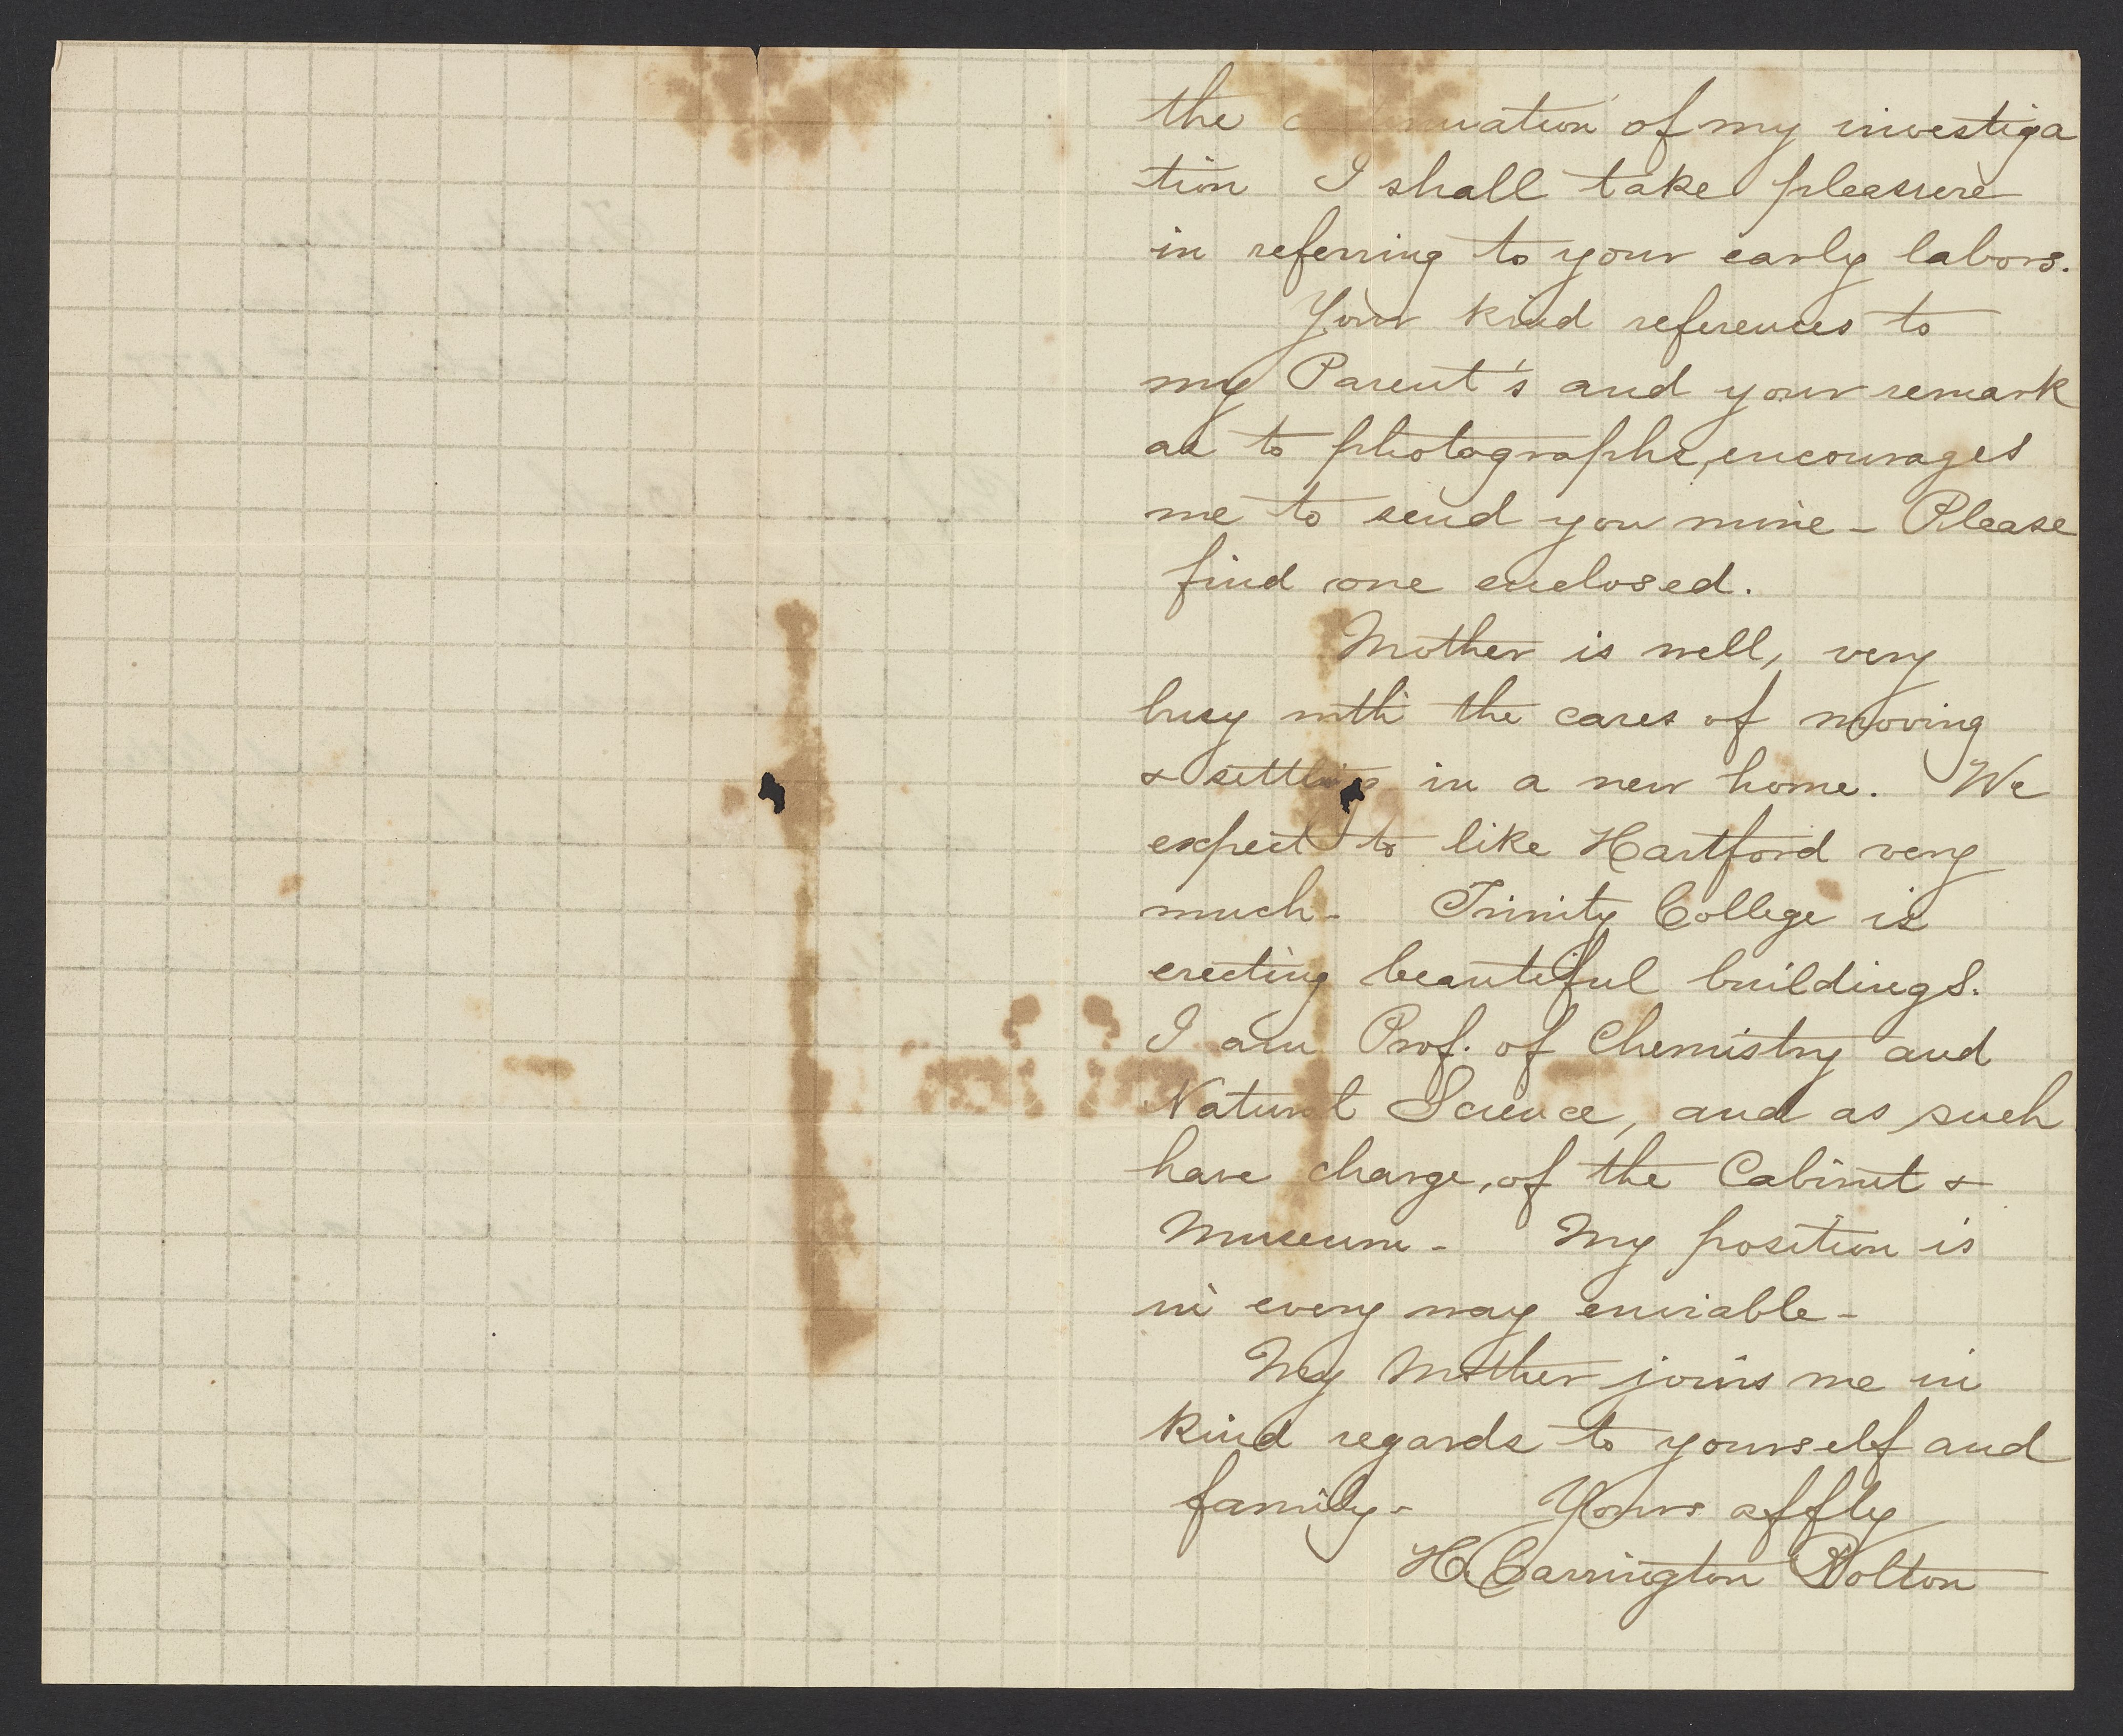 the of my investiga
tion I shall take pleasure
in referring to your early labors.
Your kind references to
my Parent's and your remark
as to photographs, encourages
me to send you mine – Please
find one enclosed.
Mother is well, very
busy with the cares of moving
& settling in a new home. We
expect to like Hartford very
much – Trinity College is
erecting beautiful buildings.
I am Prof. of Chemistry and
Natural Science, and as such
have charge, of the Cabinet &
Museum – My position is
in every way enviable –
My Mother joins me in
kind regards to yourself and
family – Yours affly
H. Carrington Bolton